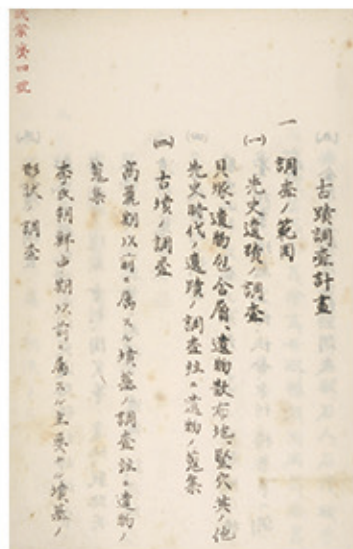 古蹟調査計畫
一 調査ノ範圍
(一) 先史遺蹟ノ調査
貝塚、遺物包含層、遺物散布地、竪穴其ノ他
先史時代ノ遺蹟ノ調査並ニ遺物ノ蒐集
(二) 古墳ノ調査
高麗期以前ニ属スル墳墓ノ調査並ニ遺物ノ
蒐集
李氏朝鮮中期以前ニ属スル主要ナル墳墓ノ
形状ノ調査